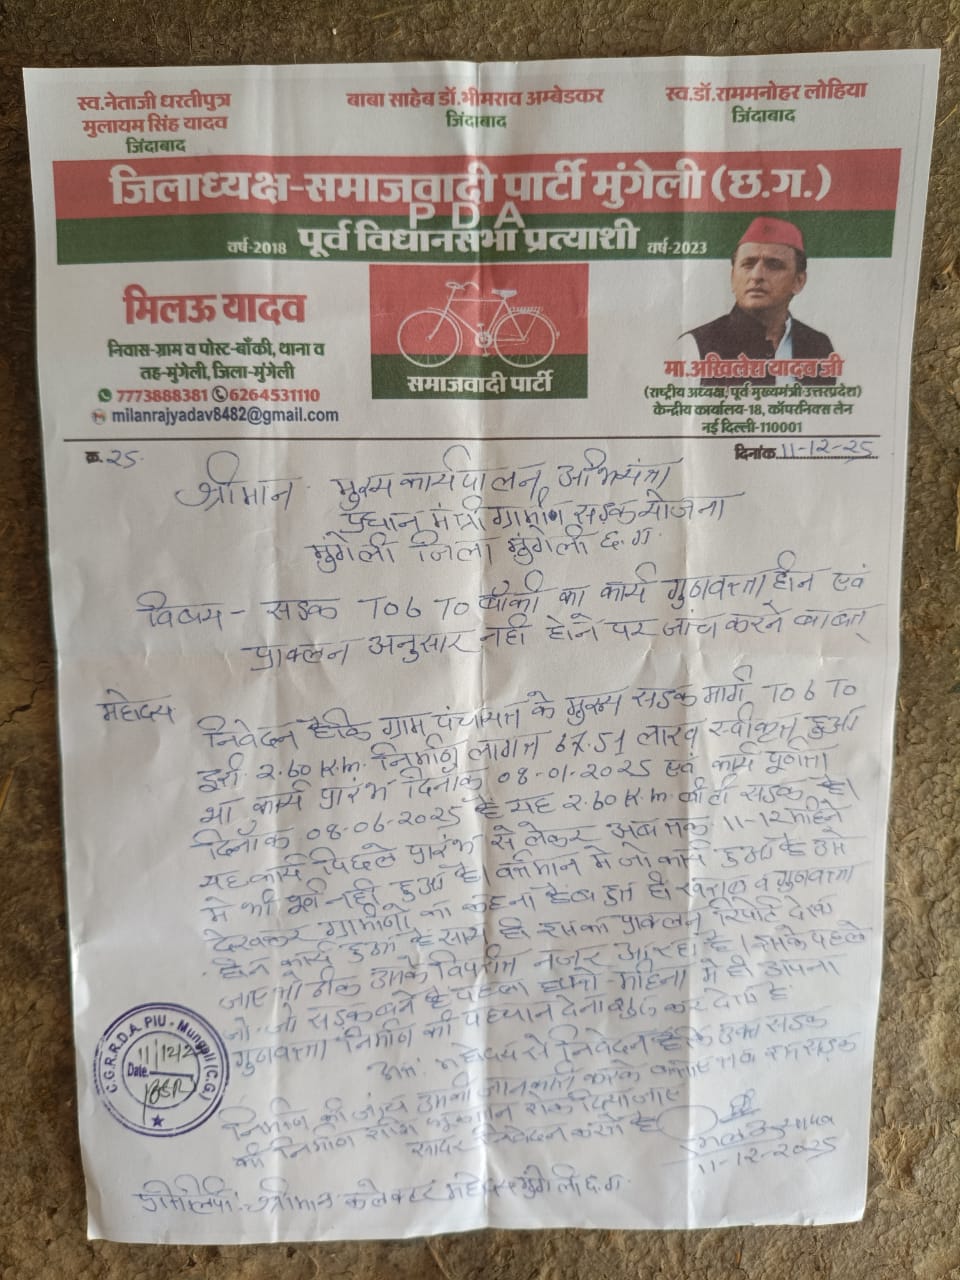 स्व.नेताजी धरतीपुत्र
मुलायम सिंह यादव
जिंदाबाद
बाबा साहेब डॉ.भीमराव अम्बेडकर
जिंदाबाद
स्व.डॉ.राममनोहर लोहिया
जिंदाबाद
जिलाध्यक्ष-समाजवादी पार्टी मुंगेली (छ.ग.)
PDA
वर्ष-2018 पूर्व विधानसभा प्रत्याशी वर्ष-2023
मिलऊ यादव
निवास-ग्राम व पोस्ट-बाँकी, थाना व
तह-मुंगेली, जिला-मुंगेली
7773888381 6264531110
milanrajyadav8482@gmail.com
समाजवादी पार्टी
मा.अखिलेश यादव जी
(राष्ट्रीय अध्यक्ष, पूर्व मुख्यमंत्री-उत्तरप्रदेश)
केन्द्रीय कार्यालय-18, कॉपरनिक्स लेन
नई दिल्ली-110001
क्र. 25.
दिनांक 11-12-25
श्रीमान मुख्य कार्यपालन अभियंता
प्रधान मंत्री ग्रामीण सड़क योजना
मुंगेली जिला मुंगेली छ.ग.
विषय - सड़क To 6 To बाँकी का कार्य गुणवत्ता हीन एवं
प्राक्लन अनुसार नही होने पर जांच करने बाबत्
महोदय
निवेदन है कि ग्राम पंचायत के मुख्य सड़क मार्ग To 6 To
2.60 K.m. निर्माण लागत 67.51 लाख स्वीकृत हुआ
था कार्य प्रारंभ दिनाँक 08-01-2025 एवं कार्य पूर्णता
दिनाँक 08-06-2025 है यह 2.60 K.m. की ही सड़क है।
यह कार्य पिछले प्रारंभ से लेकर अब तक 11-12 महिने
मे भी पूर्ण नही हुआ है। वर्तमान मे जो कार्य हुआ है उसे
देखकर ग्रामीणो का कहना है बहुत ही खराब व गुणवत्ता
हीन कार्य हुआ है साथ ही इसका प्राक्लन रिपोर्ट देखा
जाए तो ठीक उसके विपरीत नजर आ रहा है। इसके पहले
जो-जो सड़क बने है पहला दूसरा महिना मे ही अपना
गुणवत्ता निर्माण की पहचान देना शुरू कर देता है
अतः महोदय से निवेदन है कि उक्त सड़क
निर्माण की जांच उसकी जानकारी करके तब तक इस सड़क
की निर्माण राशि भुगतान रोक दिया जाए
सादर निवेदन करते है
11-12-2025
C.G.R.R.D.A. PIU - Mungeli (C.G)
11/12/2
Date.
प्रतिलिपी: श्रीमान कलेक्टर महोदय मुंगेली छ.ग.